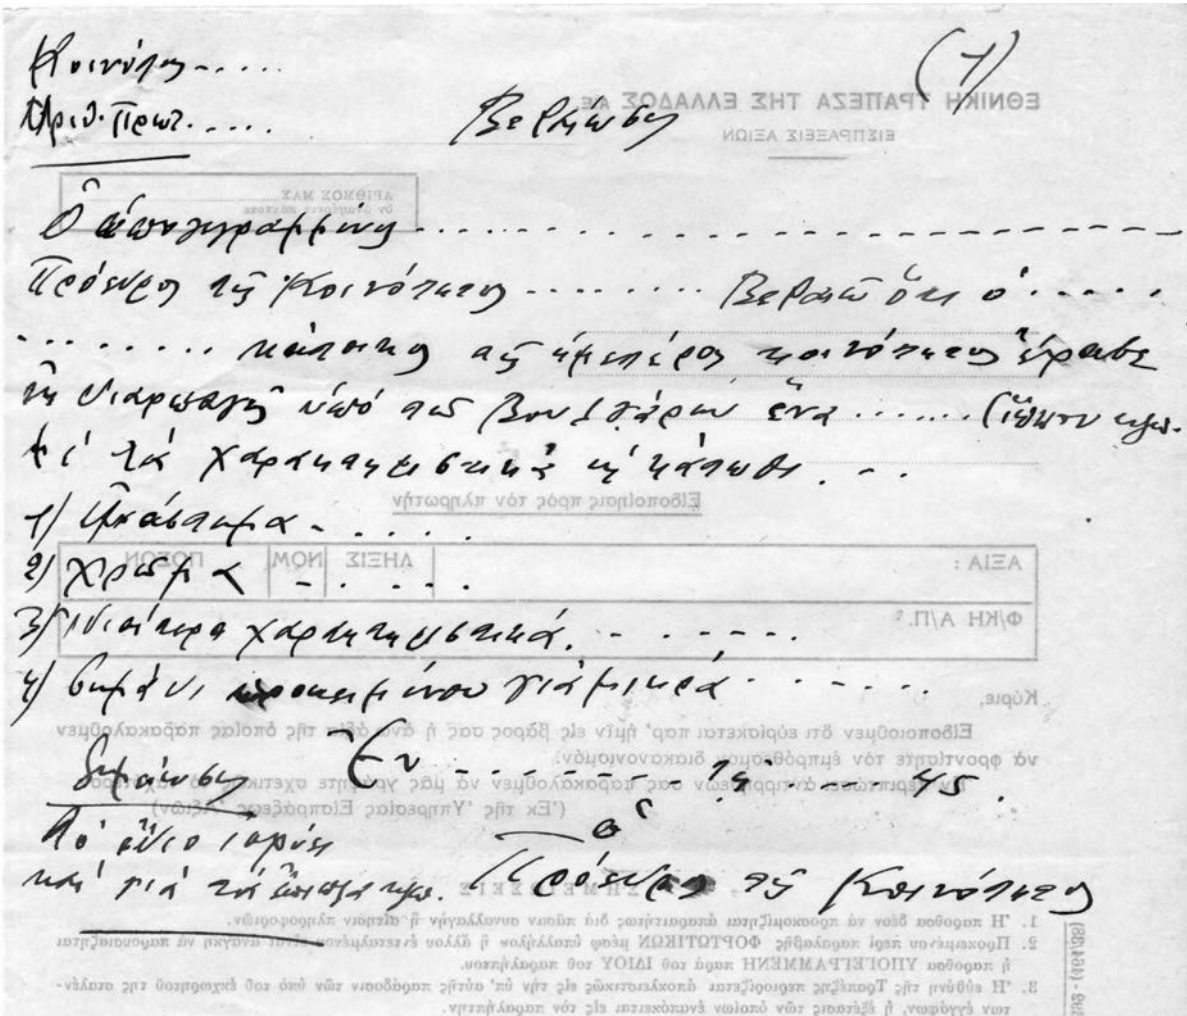 (1)
Κοινότης.....
Ἀριθ. Πρωτ. .....
Βεβαίωσις
Ὁ ὑπογεγραμμένος ..........
Πρόεδρος τῆς Κοινότητος ........ Βεβαιῶ ὅτι ὁ .....
........ κάτοικος τῆς ἡμετέρας κοινότητος
διαρπαγῇ ὑπό τῶν Βουλγάρων ἕνα ...... (ἵππον κλπ.
τά χαρακτηριστικά ὡς κάτωθι ...
1) Ἀνάστημα .....
2) Χρῶμα .....
3) Ἰδιαίτερα χαρακτηριστικά. ......
4) προκειμένου γιά μικρά ......
Σημείωσις
Ἐν ........ 19 - - 45.
Τό ἴδιο ἰσχύει
καί γιά τά ἔπιπλα κλπ.
Ὁ
Πρόεδρος τῆς Κοινότητος
ΕΘΝΙΚΗ ΤΡΑΠΕΖΑ ΤΗΣ ΕΛΛΑΔΟΣ Α.Ε.
ΕΙΣΠΡΑΞΕΙΣ ΑΞΙΩΝ
ΑΡΙΘΜΟΣ ΜΑΣ
ὃν ἀναφέρετε πάντοτε
Εἰδοποίησις πρός τόν πληρωτήν
ΑΞΙΑ : ΛΗΞΙΣ ΝΟΜ ΠΟΣΟΝ
Φ/ΚΗ Α/Π.
Κύριε,
Εἰδοποιοῦμεν ὅτι εὑρίσκεται παρ' ἡμῖν εἰς βάρος σας ἡ ἄνω ἀξία τῆς ὁποίας παρακαλοῦμεν
νά φροντίσητε τόν ἐμπρόθεσμον διακανονισμόν.
περιπτώσει ἀντιρρήσεών σας παρακαλοῦμεν νά μᾶς γράψητε σχετικῶς
(Ἐκ τῆς Ὑπηρεσίας Εἰσπράξεως Ἀξιῶν)
ΣΗΜΕΙΩΣΕΙΣ
1. Ἡ παροῦσα δέον νά προσκομίζηται ἀπαραιτήτως διά πᾶσαν συναλλαγήν ἤ αἴτησιν πληροφοριῶν.
2. Προκειμένου περί παραλαβῆς ΦΟΡΤΩΤΙΚΩΝ μέσῳ ὑπαλλήλου ἤ ἄλλου ἐντεταλμένου εἶναι ἀνάγκη νά παρουσιάζηται
ἡ παροῦσα ΥΠΟΓΕΓΡΑΜΜΕΝΗ παρά τοῦ ΙΔΙΟΥ τοῦ παραλήπτου.
3. Ἡ εὐθύνη τῆς Τραπέζης περιορίζεται ἀποκλειστικῶς εἰς τήν ὑπ' αὐτῆς παράδοσιν τῶν ὑπό τοῦ ἐκχωρητοῦ τῆς σταλέντων
ἐγγράφων, ἡ ἐξέτασις τῶν ὁποίων ἐναπόκειται εἰς τόν παραλήπτην.